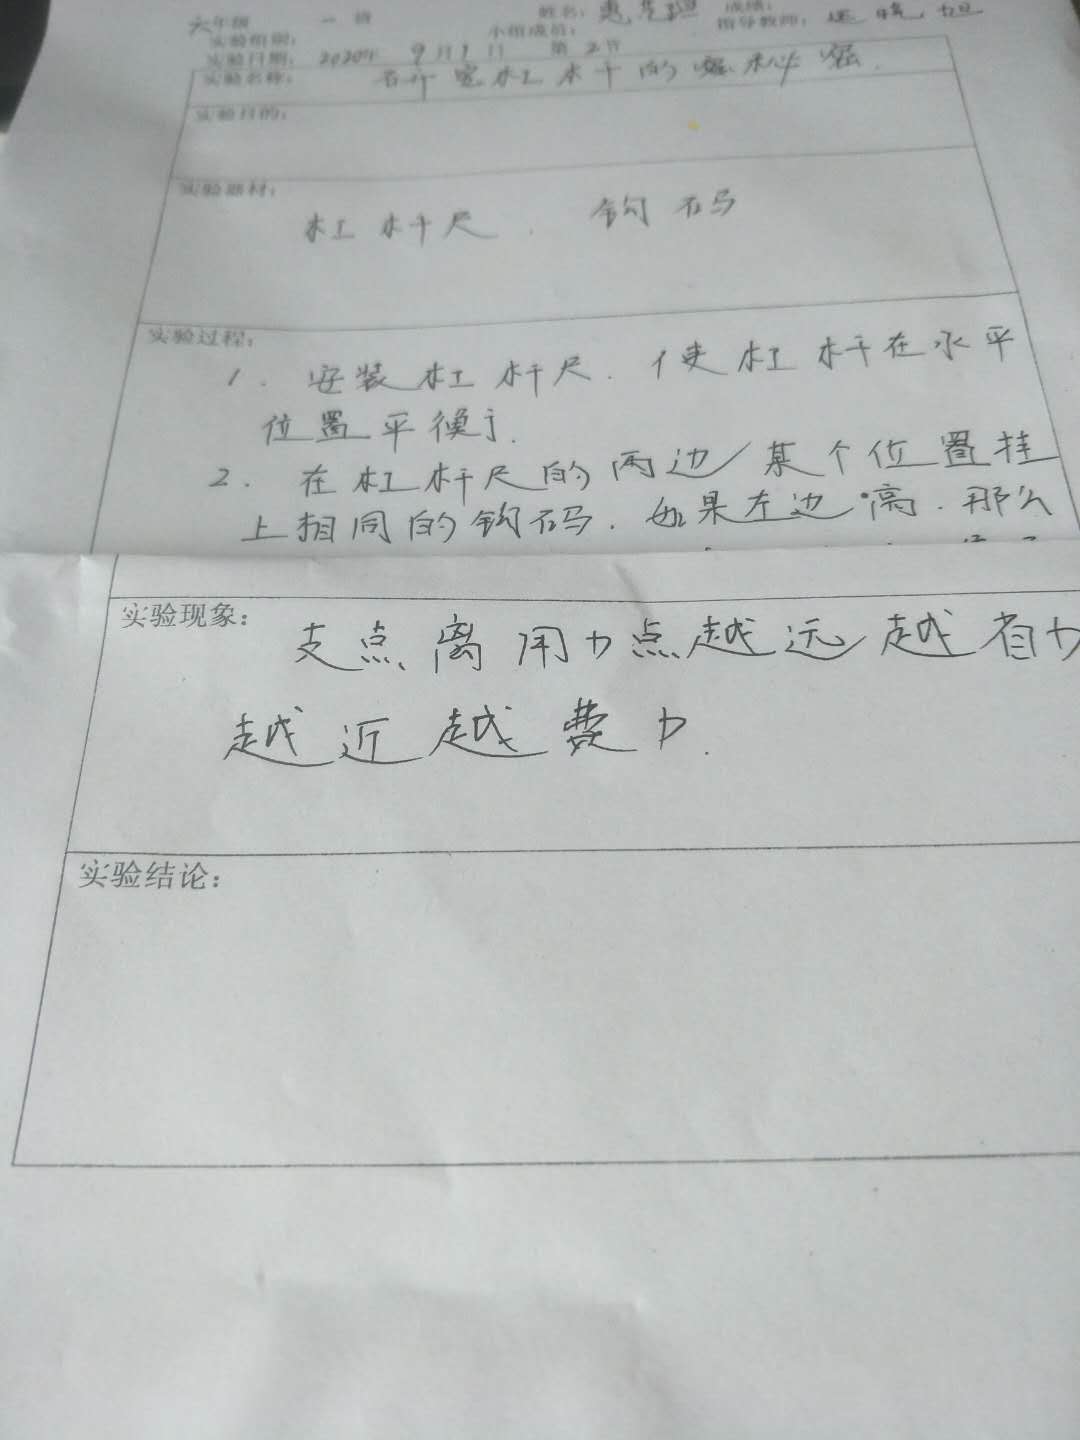 六年级 一班 姓名： 成绩：
实验组别： 小组成员： 指导教师：
实验日期：2020年 9月1日 第2节
实验名称： 研究杠杆的秘密.
实验目的：
实验器材：
杠杆尺. 钩码
实验过程：
1. 安装杠杆尺. 使杠杆在水平
位置平衡.
2. 在杠杆尺的两边某个位置挂
上相同的钩码. 如果左边高. 那么
实验现象：
支点离用力点越远越省力
越近越费力.
实验结论：